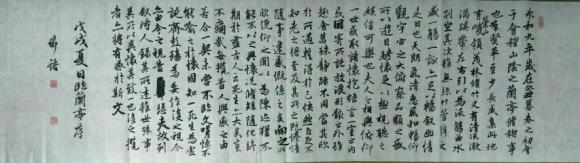 永和九年歲在癸丑暮春之初會
于會稽山陰之蘭亭脩禊事
也羣賢畢至少長咸集此地
有崇山峻領茂林脩竹又有清流激
湍暎帶左右引以為流觴曲水
列坐其次雖無絲竹管弦之
盛一觴一詠亦足以暢敘幽情
是日也天朗氣清惠風和暢仰
觀宇宙之大俯察品類之盛
所以遊目騁懷足以極視聽之
娛信可樂也夫人之相與俯仰
一世或取諸懷抱悟言一室之內
或因寄所託放浪形骸之外雖
趣舍萬殊靜躁不同當其欣
於所遇蹔得於己快然自足不
知老之將至及其所之既惓情
隨事遷感慨係之矣向之所
欣俛仰之閒以為陳迹猶不
能不以之興懷況脩短隨化終
期於盡古人云死生亦大矣豈
不痛哉每攬昔人興感之由
若合一契未嘗不臨文嗟悼不
能喻之於懷固知一死生為虛
誕齊彭殤為妄作後之視今
亦由今之視昔悲夫故列
敘時人錄其所述雖世殊事
異所以興懷其致一也後之攬
者亦將有感於斯文
戊戌夏日臨蘭亭序